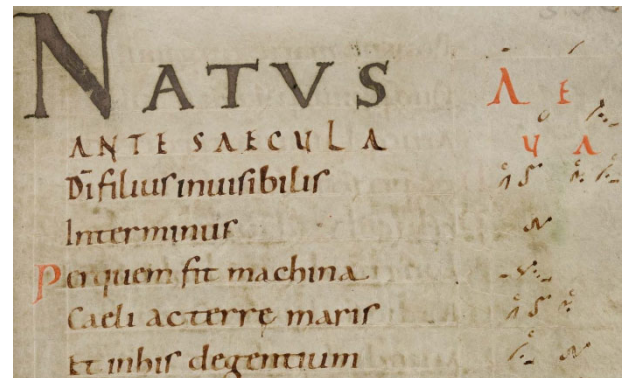 NATVS A E
ANTE SAECULA U A
Dī filius inuisibilis
Interminus
Per quem fit machina
Caeli ac terrę maris
Et in his degentium